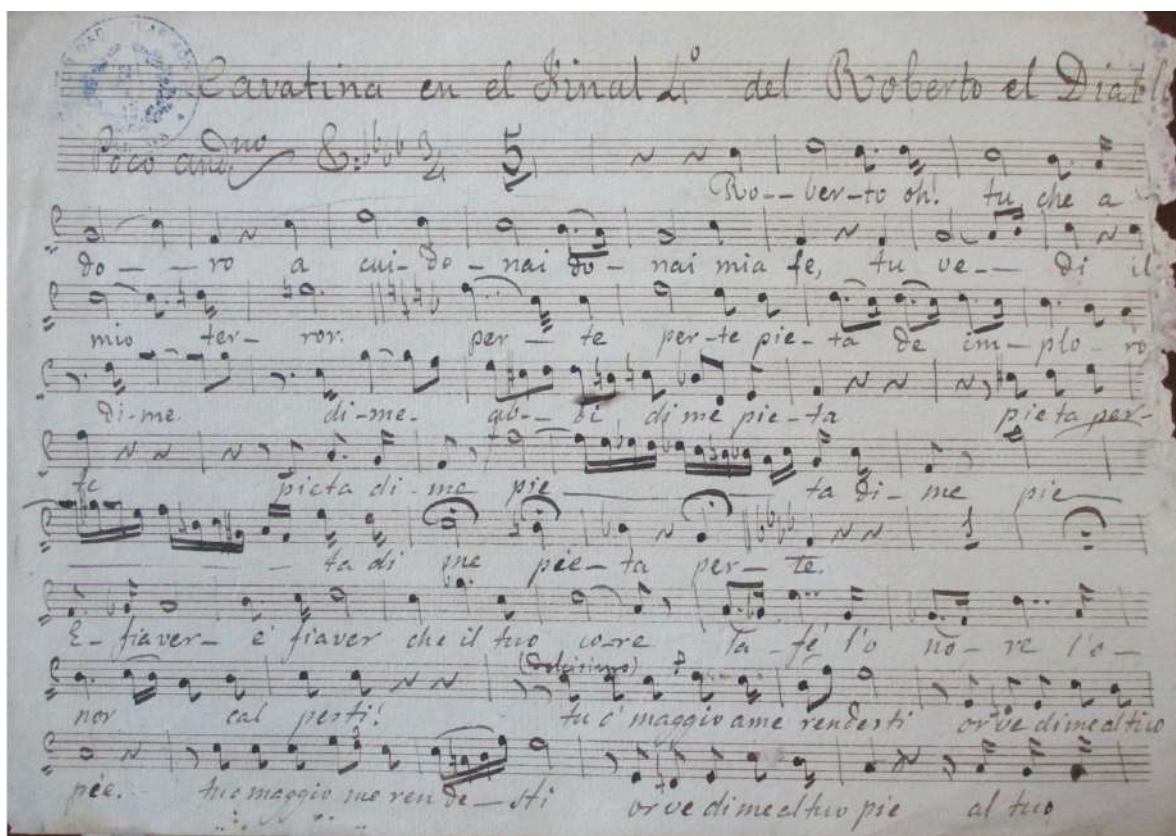 Cavatina en el Final 4º del Roberto el Diabl
Poco and.no 3/4 5
Ro--ber-to oh! tu che a
do--ro a cui-do-nai do-nai mia fe, tu ve-- di il
mio ter-ror. per-te per-te pie-ta de im-plo-ro
di-me. di-me. ab-- di di me pie-ta pieta per-
te pieta di-me pie ta di-me pie
ta di me pie-ta per-te.
E-fiaver-e' fiaver che il tuo co-re la-fe' l'o no-re l'o-
(dolcisimo)
nor cal pesti! tu o' maggio a me rendesti or ve di me al tuo
piè. tuo maggio me ren de-sti or ve di me al tuo pie al tuo